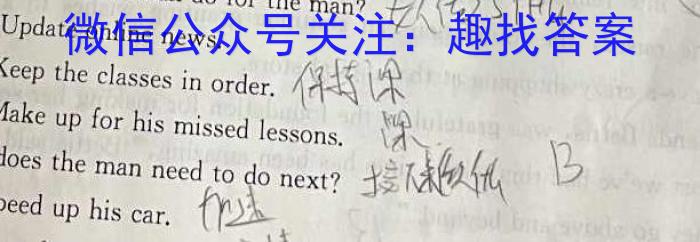 the man?
Update online news.
微信公众号关注：趣找答案
Keep the classes in order. 保持课
Make up for his missed lessons. 课
does the man need to do next?
B
peed up his car. 加速